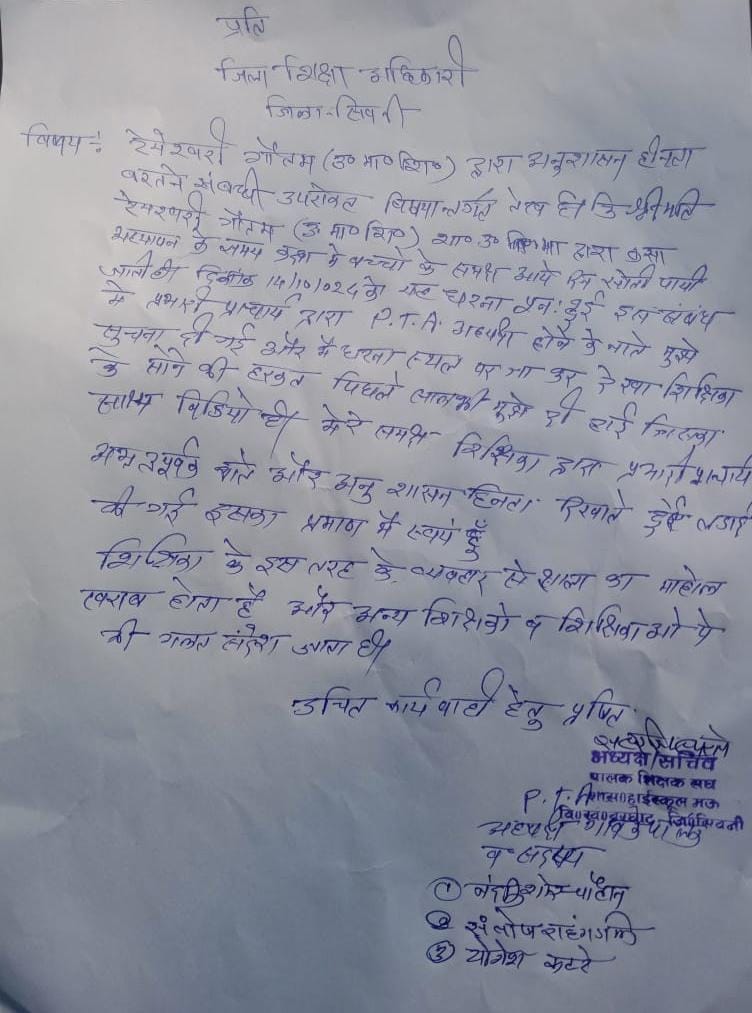 प्रति
जिला शिक्षा अधिकारी
जिला-सिवनी
विषय: रेमेश्वरी गौतम (उ० मा० शि०) द्वारा अनुशासन हीनता
बरतने संबंधी उपरोक्त विषयान्तर्गत लेख है कि श्रीमति
रेमेश्वरी गौतम (उ मा० शि०) शा० उ० द्वारा कक्षा
अध्यापन के समय कक्षा में बच्चों के समक्ष आये दिन सोती पायी
जाती है दिनांक 14/10/024 को यह घटना पुन: हुई इस संबंध
में प्रभारी प्राचार्य द्वारा P.T.A. अध्यक्ष होने के नाते मुझे
सुचना दी गई और मैं घटना स्थल पर जा कर देखा शिक्षिका
के सोने की हरकत पिछले साल भी मुझे दी गई जिसका
साक्ष्य विडियो है। मेरे समक्ष शिक्षिका द्वारा प्रभारी प्राचार्य
अभद्रतापूर्वक बाते और अनु शासन हिनता दिखाते हुई लडाई
की गई इसका प्रमाण मैं स्वयं हूँ
शिक्षिका के इस तरह के व्यवहार से शाला का माहोल
खराब होता है और अन्य शिक्षको व शिक्षिकाओ पे
भी गलत संदेश जाता है।
उचित कार्यवाही हेतु प्रेषित
अध्यक्ष/सचिव
पालक शिक्षक संघ
P. T. A शास० हाईस्कूल मऊ
वि०ख० बरघाट जि० सिवनी
अध्यक्ष
व सदस्य
① नंदकिशोर चौहान
② संतोष राहंगडाले
③ योगेश कटरे